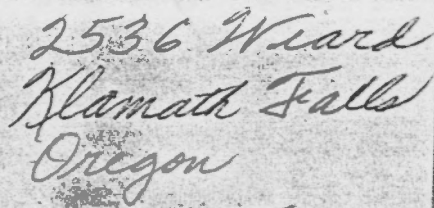 2536 Wiard
Klamath Falls
Oregon